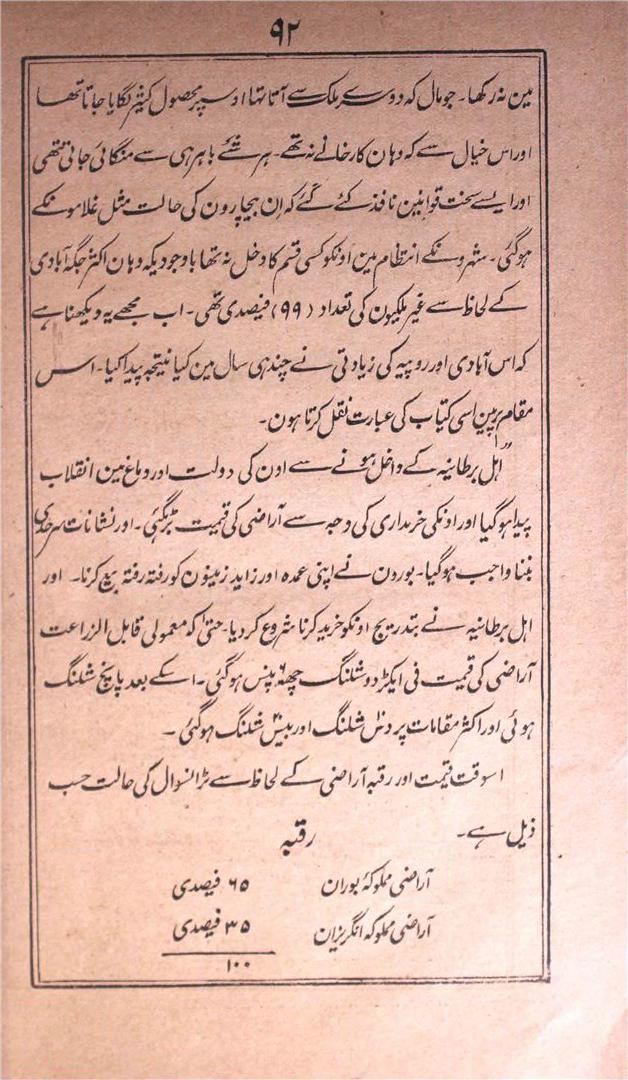 ۹۲
مین نہ رکھا۔ جو مال کہ دوسرے ملک سے آتا تہا اوسپر محصول کثیر لگایا جاتا تھا
اور اس خیال سے کہ وہان کارخانے نہ تھے۔ ہر شئے باہر ہی سے منگائی جاتی تھی
اور ایسے سخت قوانین نافذ کئے گئے کہ ان بیچارون کی حالت مثل غلامونکے
ہوگئی۔ شہرونکے انتظام مین اونکو کسی قسم کا دخل نہ تھا باوجودیکہ وہان اکثر جگہ آبادی
کے لحاظ سے غیر ملکیون کی تعداد (۹۹) فیصدی تھی۔ اب مجھے یہ دیکھنا ہے
کہ اس آبادی اور روپیہ کی زیادتی نے چند ہی سال مین کیا نتیجہ پیدا کیا۔ اس
مقام پر مین اسی کتاب کی عبارت نقل کرتا ہون۔
اہل برطانیہ کے داخل ہونے سے اون کی دولت اور دماغ مین انقلاب
پیدا ہوگیا اور اونکی خریداری کی وجہ سے آراضی کی قیمت بڑہگئی۔ اور نشانات سرحدی
بننا واجب ہوگیا۔ بورون نے اپنی عمدہ اور زاید زمینون کو رفتہ رفتہ بیع کرنا۔ اور
اہل برطانیہ نے بتدریج اونکو خرید کرنا شروع کر دیا۔ حتیٰ کہ معمولی قابل الزراعت
آراضی کی قیمت فی ایکڑ دو شلنگ چھہ ۶ پنس ہوگئی۔ اسکے بعد پانچ شلنگ
ہوئی اور اکثر مقامات پر دس شلنگ اور بیس شلنگ ہوگئی۔
اسوقت قیمت اور رقبہ آراضی کے لحاظ سے ٹرانسوال کی حالت حسب
ذیل ہے۔
رقبہ
آراضی مملوکۂ بوران ۶۵ فیصدی
آراضی مملوکہ انگریزان ۳۵ فیصدی
۱۰۰